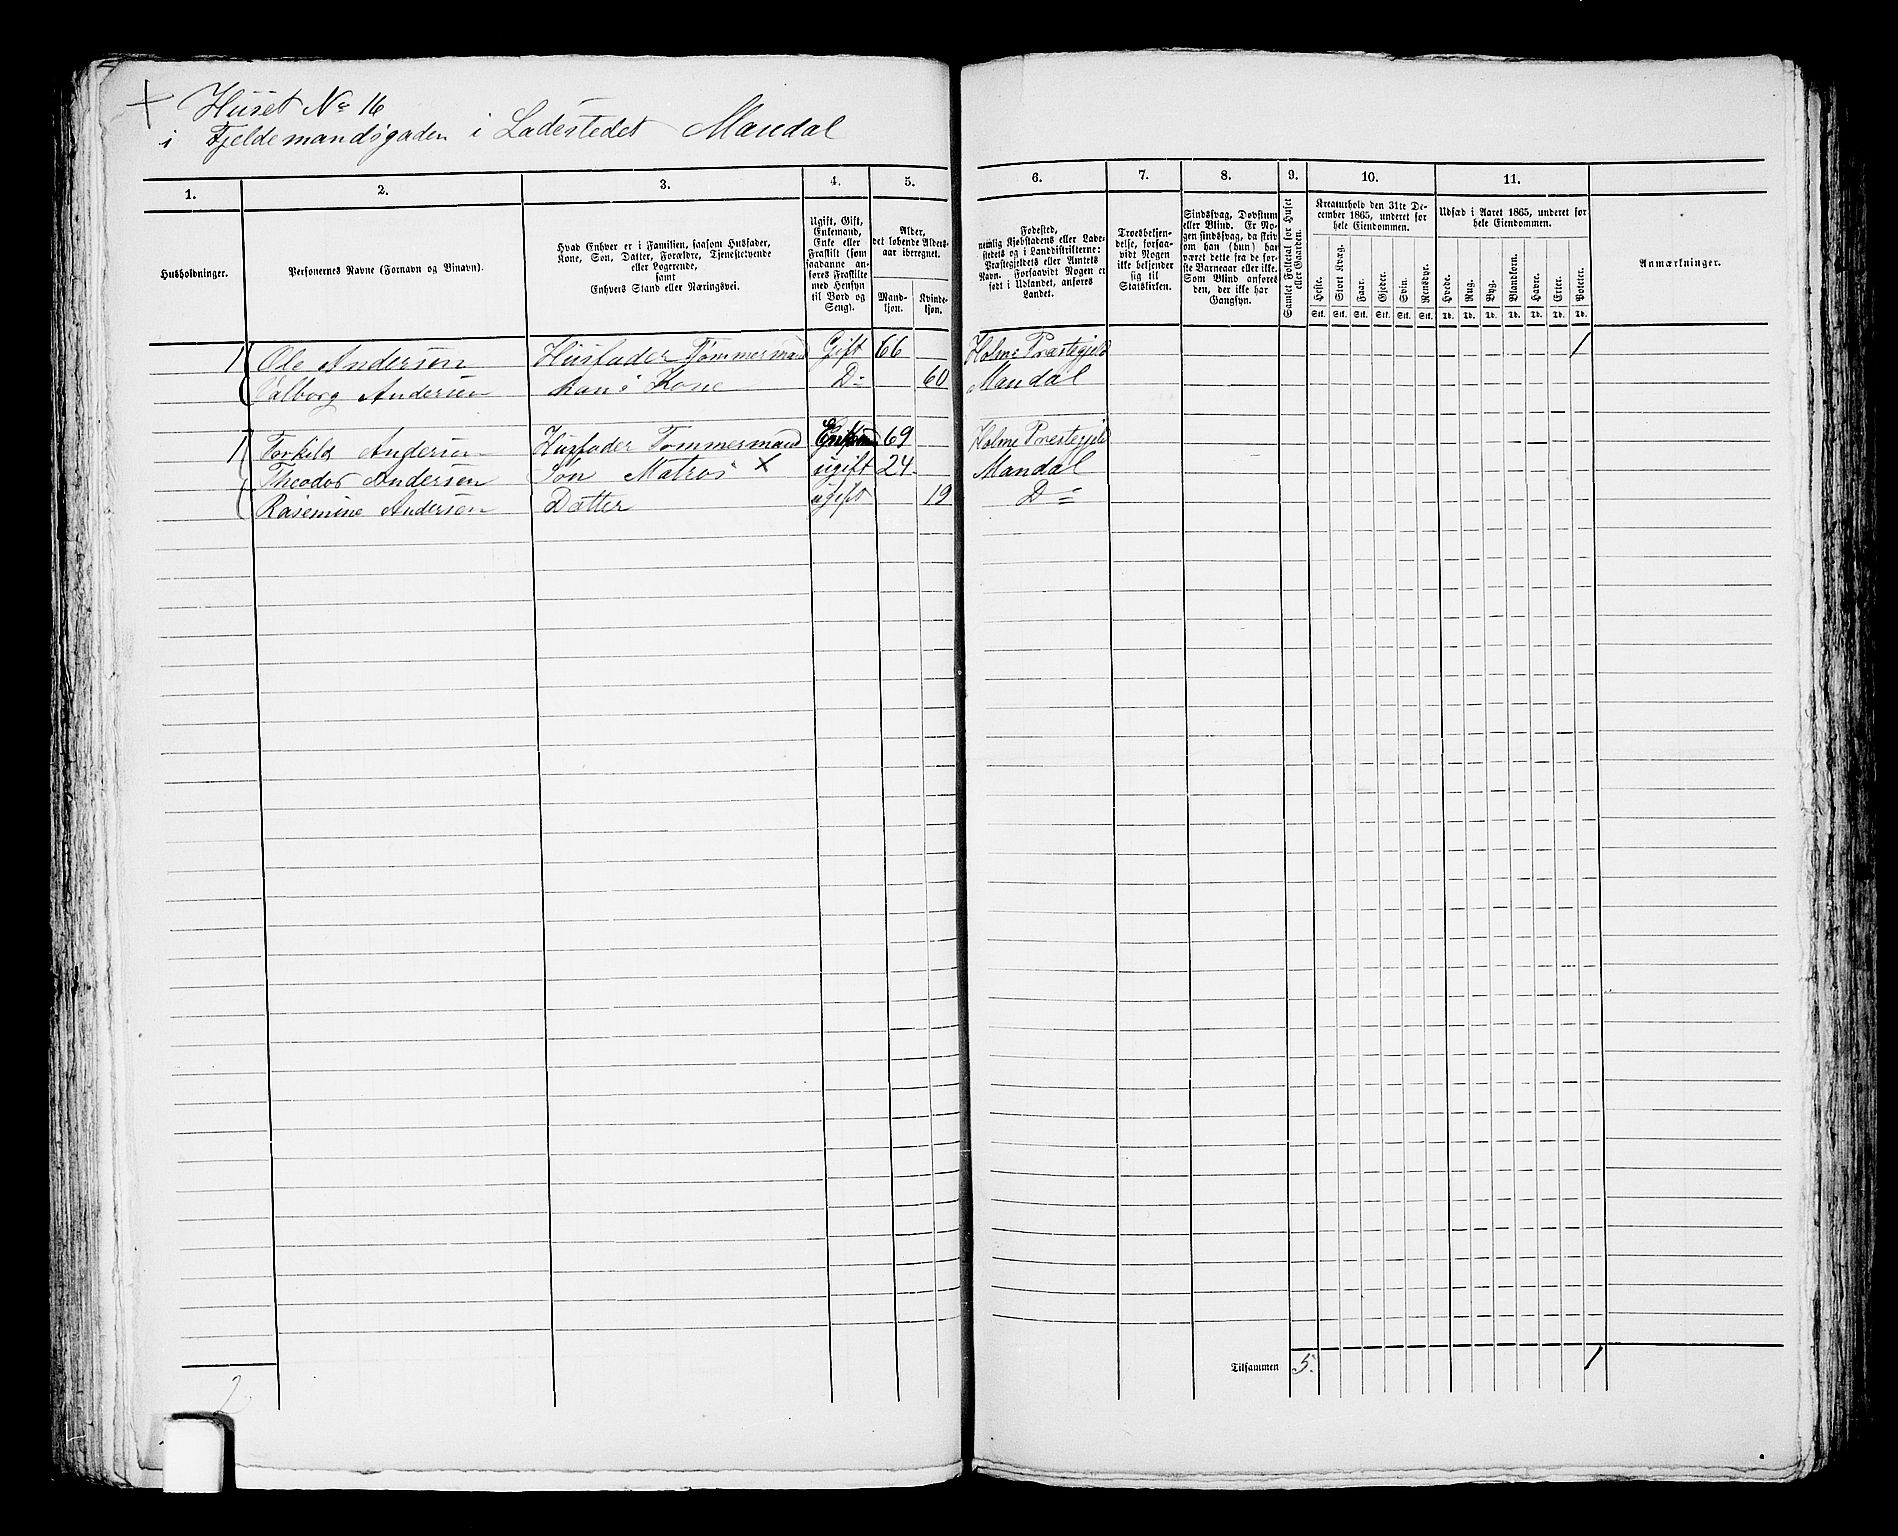 Huset No 16
i Fjeldemandsgaden i Ladestedet Mandal
1. 2. 3. 4. 5. 6. 7. 8. 9. 10. 11.
Husholdninger.
Personernes Navne (Fornavn og Binavn).
Hvad Enhver er i Familien, saasom Husfader,
Kone, Søn, Datter, Forældre, Tjenestetyende
eller Logerende,
samt
Enhvers Stand eller Næringsvei.
Ugift, Gift,
Enkemand,
Enke eller
Fraskilt (som
saadanne an-
føres Fraskilte
med Hensyn
til Bord og
Seng).
Alder,
det løbende Alders-
aar iberegnet.
Mand-
kjøn.
Kvinde-
kjøn.
Fødested,
nemlig Kjøbstadens eller Lade-
stedets og i Landdistrikterne:
Præstegjeldets eller Amtets
Navn. Forsaavidt Nogen er
født i Udlandet, anføres
Landet.
Troesbekjen-
delse, forsaa-
vidt Nogen
ikke bekjender
sig til
Statskirken.
Sindssvag, Døvstum
eller Blind. Er No-
gen sindssvag, da skriv
om han (hun) har
været dette fra de før-
ste Barneaar eller ikke.
Som Blind anføres
den, der ikke har
Gangsyn.
Samlet Folketal for Huset
eller Gaarden.
Kreaturhold den 31te De-
cember 1865, underet for
hele Eiendommen.
Heste. Stort Kvæg. Faar. Gjeder. Svin. Rensdyr.
Stk. Stk. Stk. Stk. Stk. Stk.
Udsæd i Aaret 1865, underet for
hele Eiendommen.
Hvede. Rug. Byg. Blandkorn. Havre. Erter. Poteter.
Td. Td. Td. Td. Td. Td. Td.
Anmærkninger.
1 Ole Andersen Husfader Tømmermand Gift 66 Holme Præstegjeld 1
Valborg Andersen hans Kone Do 60 Mandal
1 Torkild Andersen Husfader Tømmermand Enkem 69 Holme Præstegjeld
Theodor Andersen Søn Matros x ugift 24 Mandal
Rasemine Andersen Datter ugift 19 Do
Tilsammen 5. 1
2